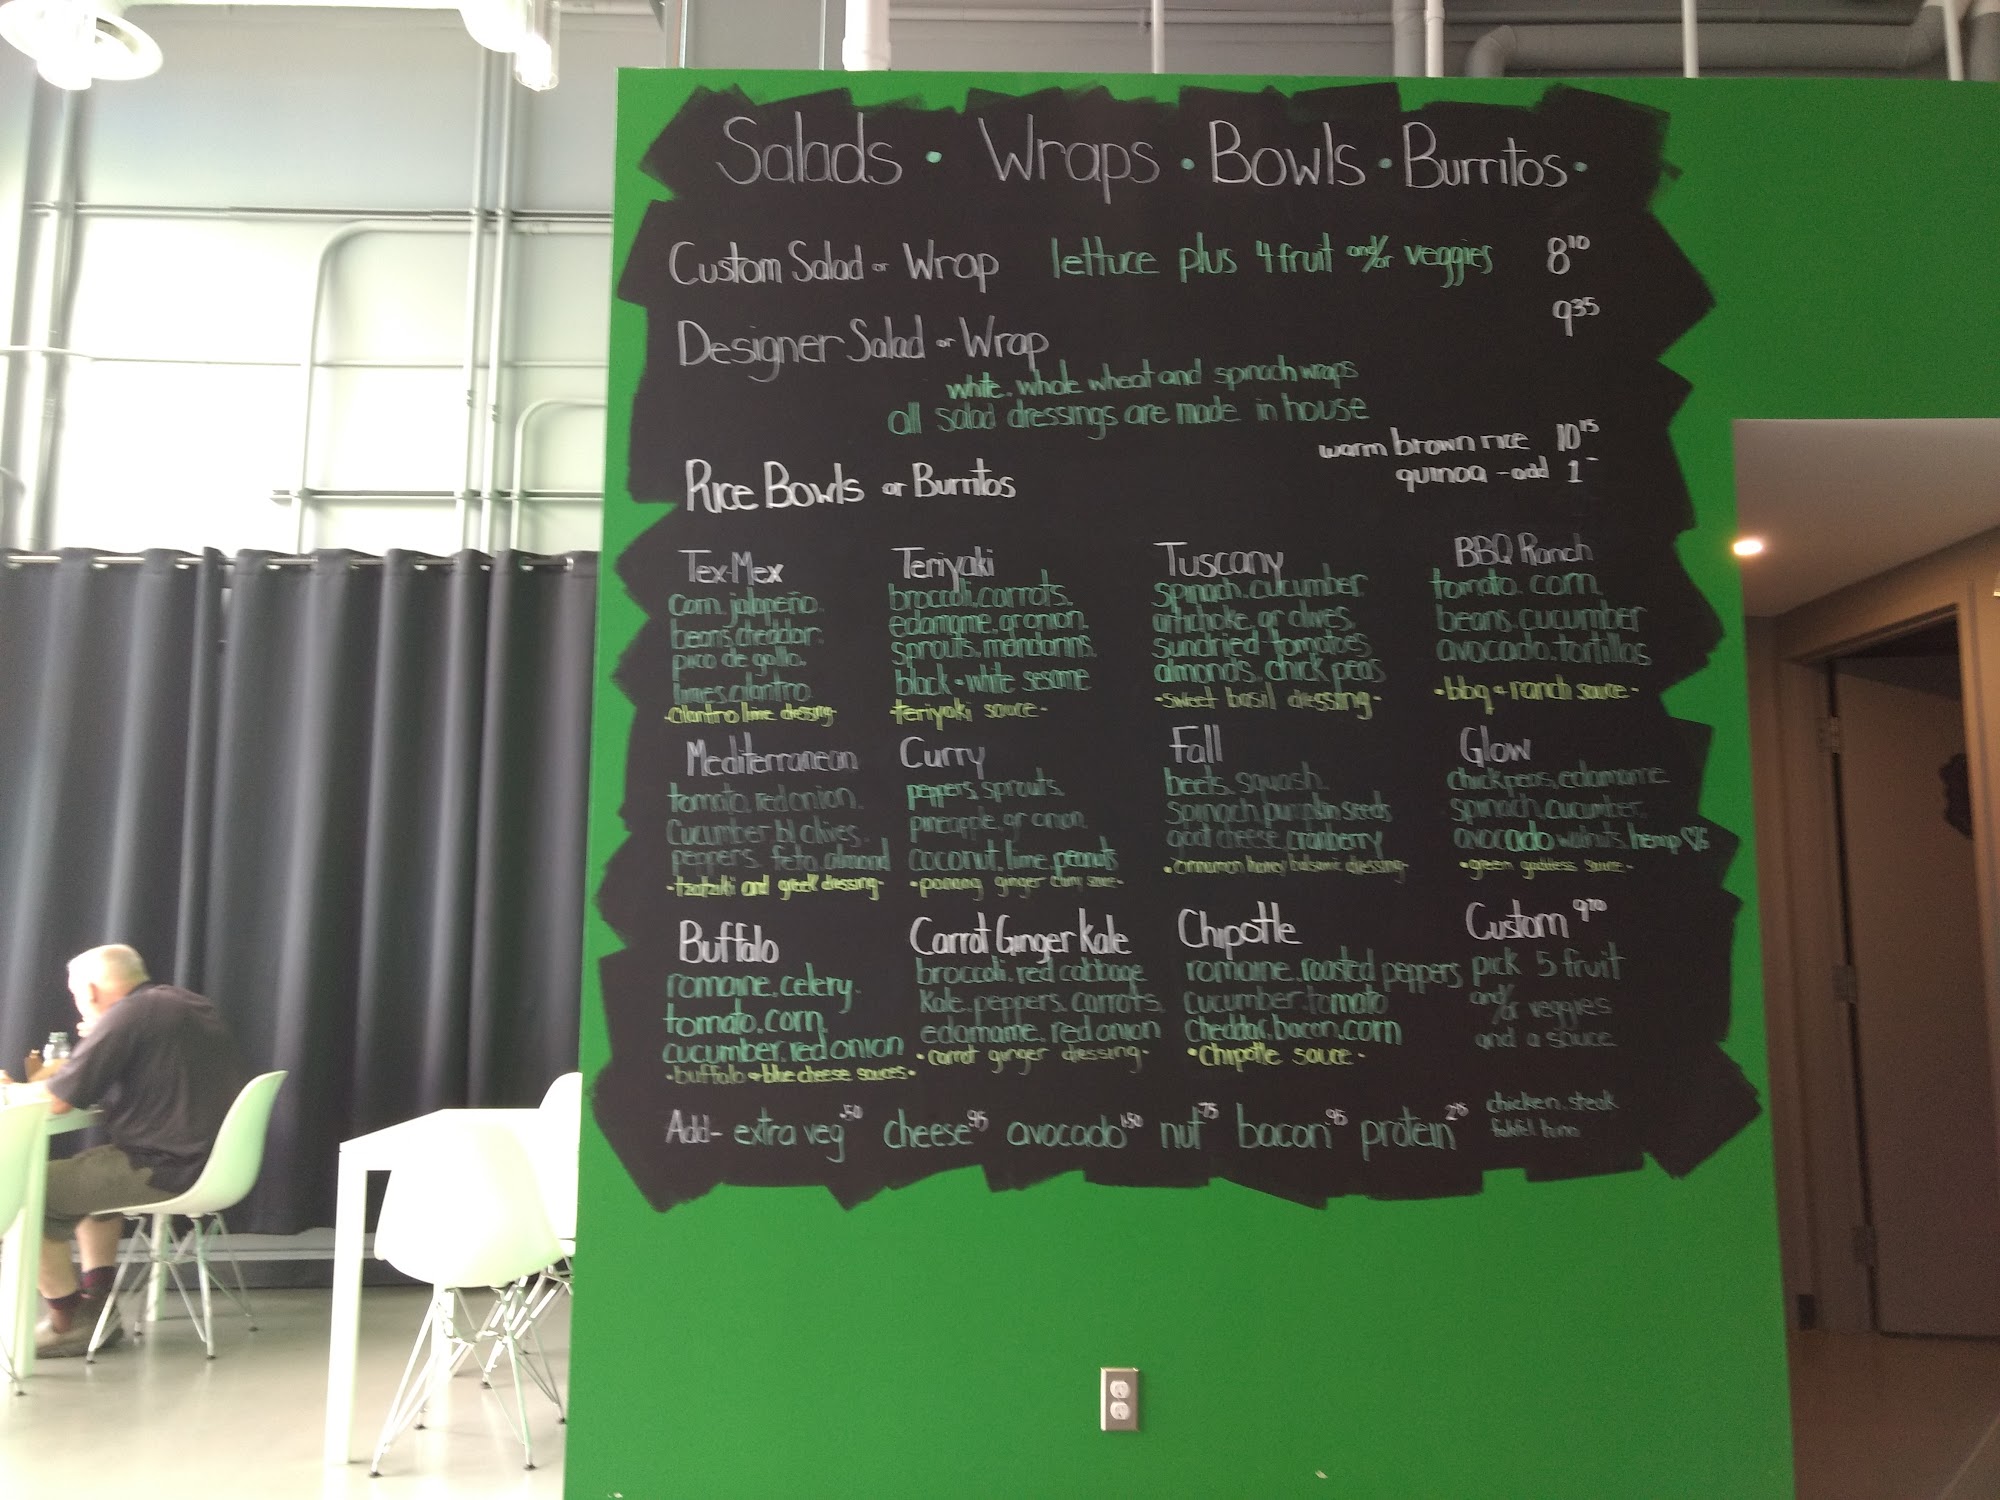 Salads • Wraps • Bowls • Burritos •
Custom Salad or Wrap lettuce plus 4 fruit and/or veggies 8.10
9.35
Designer Salad or Wrap
white. whole wheat and spinach wraps
all salad dressings are made in house
warm brown rice 10.15
quinoa - add 1
Rice Bowls or Burritos
Tex-Mex
corn. jalapeño.
beans. cheddar.
pico de gallo.
limes. cilantro.
•cilantro lime dressing•
Teriyaki
broccoli. carrots.
edamame. gr onion.
sprouts. mandarins.
black + white sesame
•teriyaki sauce•
Tuscany
spinach. cucumber
artichoke. gr olives.
sundried tomatoes
almonds. chick peas
•sweet basil dressing•
BBQ Ranch
tomato. corn.
beans. cucumber
avocado. tortillas
•bbq + ranch sauce•
Mediterranean
tomato. red onion.
cucumber bl olives.
peppers. feta. almond
•tzatziki and greek dressing•
Curry
peppers. sprouts.
pineapple. gr onion.
coconut. lime. peanuts
•panang ginger curry sauce•
Fall
beets. squash.
spinach pumpkin seeds
goat cheese. cranberry
•cinnamon honey balsamic dressing•
Glow
chick peas. edamame
spinach. cucumber.
avocado walnuts. hemp
•green goddess sauce•
Buffalo
romaine. celery.
tomato. corn.
cucumber. red onion
•buffalo + blue cheese sauces•
Carrot Ginger Kale
broccoli. red cabbage
kale. peppers. carrots.
edamame. red onion
•carrot ginger dressing•
Chipotle
romaine. roasted peppers
cucumber. tomato
cheddar. bacon. corn
•chipotle sauce•
Custom 9.70
pick 5 fruit
and/or veggies
and a sauce
Add- extra veg .50 cheese .95 avocado 1.50 nut .75 bacon .95 protein
chicken. steak
falafel. tuna